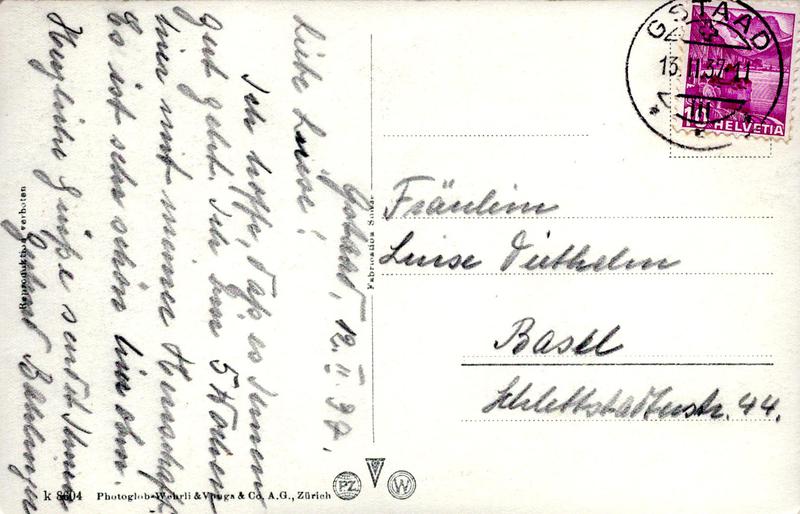 Gstaad, 12. II. 37.
Liebe Luise!
Ich hoffe, daß es Ihnen
gut geht. Ich bin 5 Wochen
hier mit meiner Herrschaft.
Es ist sehr schön hier oben.
Herzliche Grüße sendet Ihnen
Gertrud
Fräulein
Luise Diethelm
Basel
Schlettstadterstr. 44.
GSTAAD
13. II. 37-11
10 HELVETIA
Reproduktion verboten
Fabrication Suisse
k 8604 Photoglob-Wehrli & Vouga & Co. A.G., Zürich
PZ
W